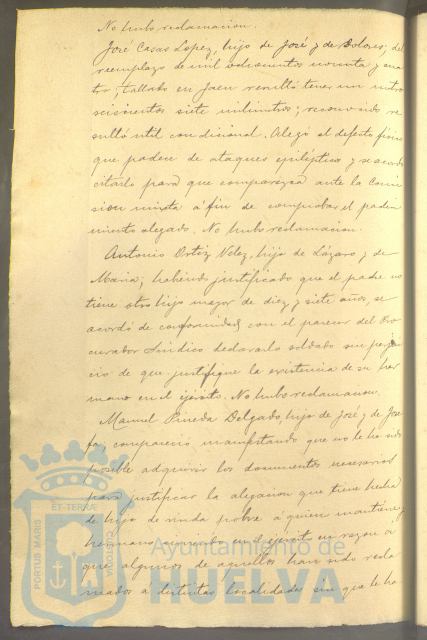 No hubo reclamacion.
José Casas Lopez, hijo de José y de Dolores; del
reemplazo de mil ochocientos noventa y cua
tro; tallado en Jaen resultó tener un metro
seiscientos siete milimetros; reconocido re
sultó util condicional. Alegó el defecto fisico
que padece de ataques epilépticos y se acordó
citarlo para que comparezca ante la Comi
sion mixta á fin de comprobar el padeci
miento alegado. No hubo reclamacion.
Antonio Ortiz Velez, hijo de Lázaro y de
Maria; habiendo justificado que el padre no
tiene otro hijo mayor de diez y siete años, se
acordó de conformidad con el parecer del Pro
curador Sindico declararlo soldado sin perjui
cio de que justifique la existencia de su her
mano en el ejército. No hubo reclamacion.
Manuel Pineda Delgado, hijo de José y de Jose
fa, compareció manifestando que no le ha sido
posible adquirir los documentos necesarios
para justificar la alegacion que tiene hecha
de hijo de viuda pobre á quien mantiene y
hermano sirviendo en el ejército en razon á
que algunos de aquellos han sido recla
mados á distintas localidades sin que le ha
PORTUS MARIS
ET TERRÆ
CUSTODIA
Ayuntamiento de
HUELVA